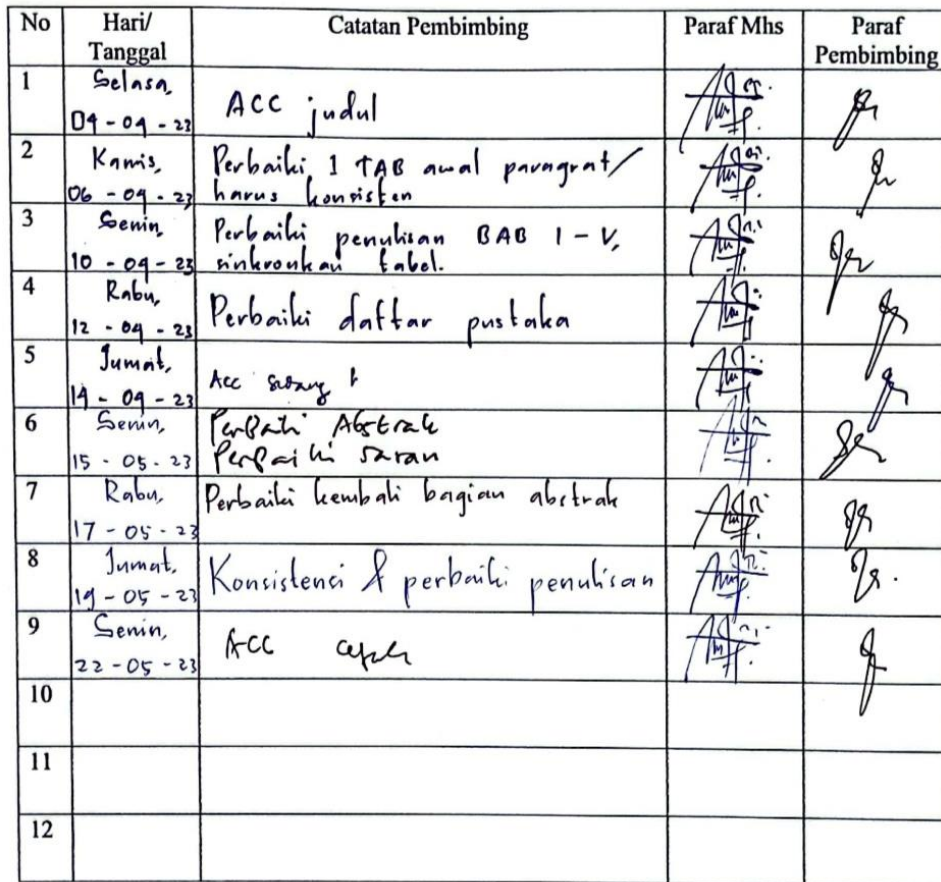 No Hari/ Tanggal Catatan Pembimbing Paraf Mhs Paraf Pembimbing
1 Selasa, 04-04-23 ACC judul
2 Kamis, 06-04-23 Perbaiki 1 TAB awal paragraf/
harus konsisten
3 Senin, 10-04-23 Perbaiki penulisan BAB I-V,
sinkronkan tabel.
4 Rabu, 12-04-23 Perbaiki daftar pustaka
5 Jumat, 14-04-23 Acc sidang
6 Senin, 15-05-23 Perbaiki Abstrak
Perbaiki saran
7 Rabu, 17-05-23 Perbaiki kembali bagian abstrak
8 Jumat, 19-05-23 Konsistensi & perbaiki penulisan
9 Senin, 22-05-23 ACC
10
11
12